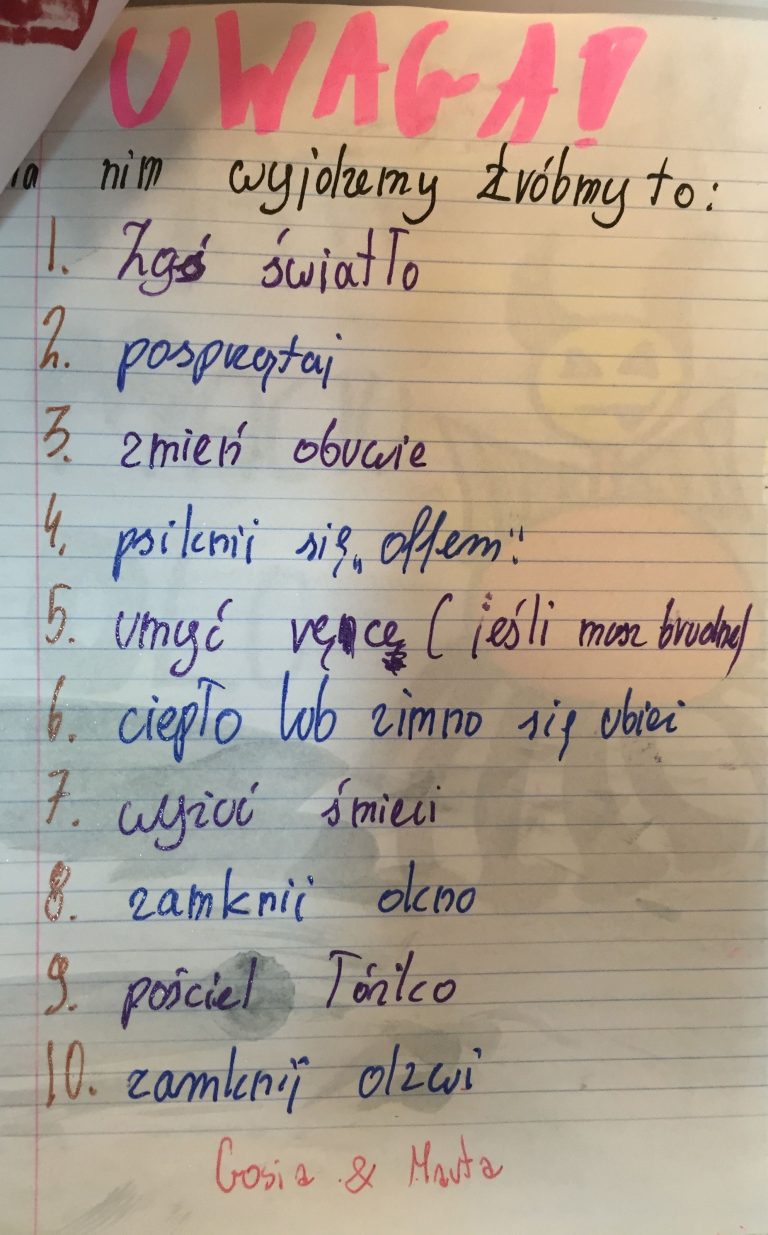 UWAGA!
nim wyjdzemy źróbmy to:
1. Zgś światło
2. posprzątaj
3. zmień obuwie
4. psiknij się „offem"
5. umyć ręce ( jeśli masz brudne)
6. ciepło lub zimno się ubiei
7. wyzuć śmieci
8. zamknij okno
9. pościel łóżko
10. zamknij dzwi
Gosia & Marta